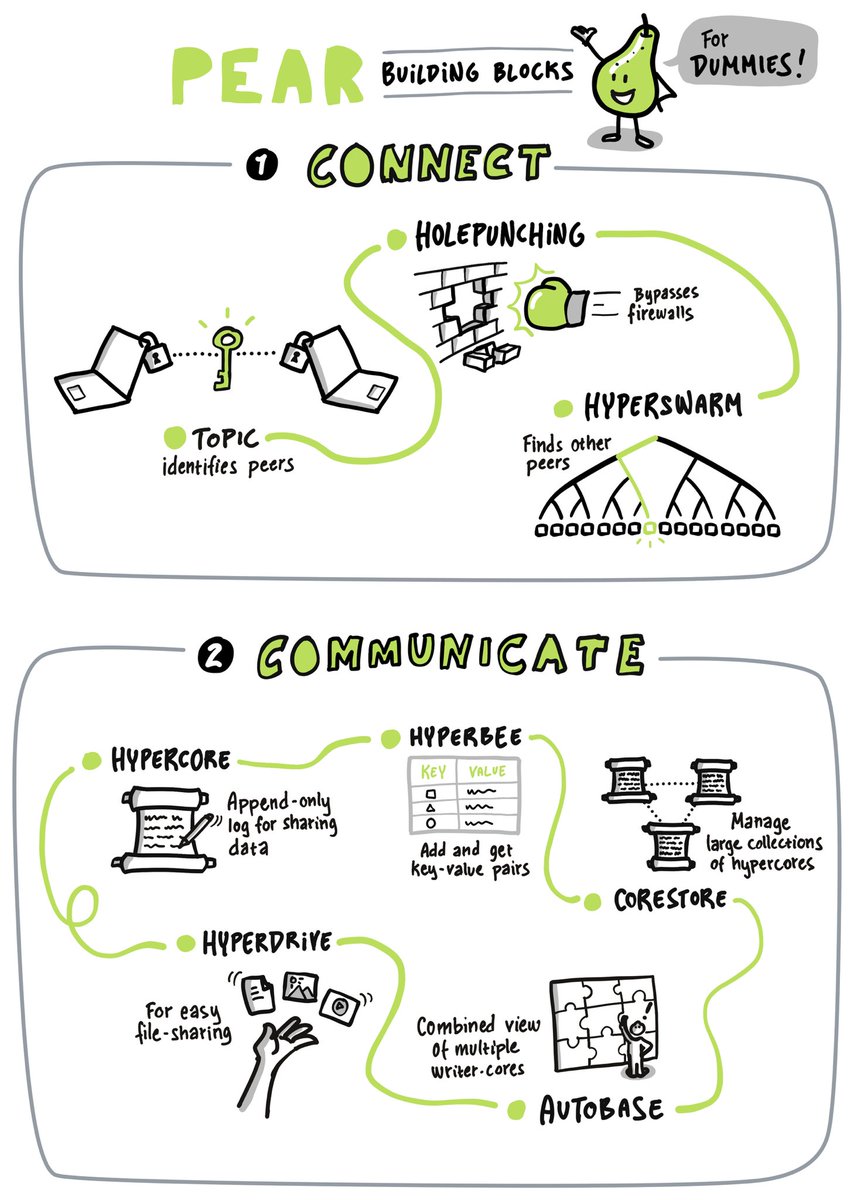 PEAR
BUILDING BLOCKS
For
DUMMIES!
1 CONNECT
TOPIC
identifies peers
HOLEPUNCHING
Bypasses
firewalls
HYPERSWARM
Finds other
peers
2 COMMUNICATE
HYPERCORE
Append-only
log for sharing
data
HYPERBEE
KEY VALUE
Add and get
key-value pairs
Manage
large collections
of hypercores
CORESTORE
HYPERDRIVE
For easy
file-sharing
Combined view
of multiple
writer-cores
AUTOBASE